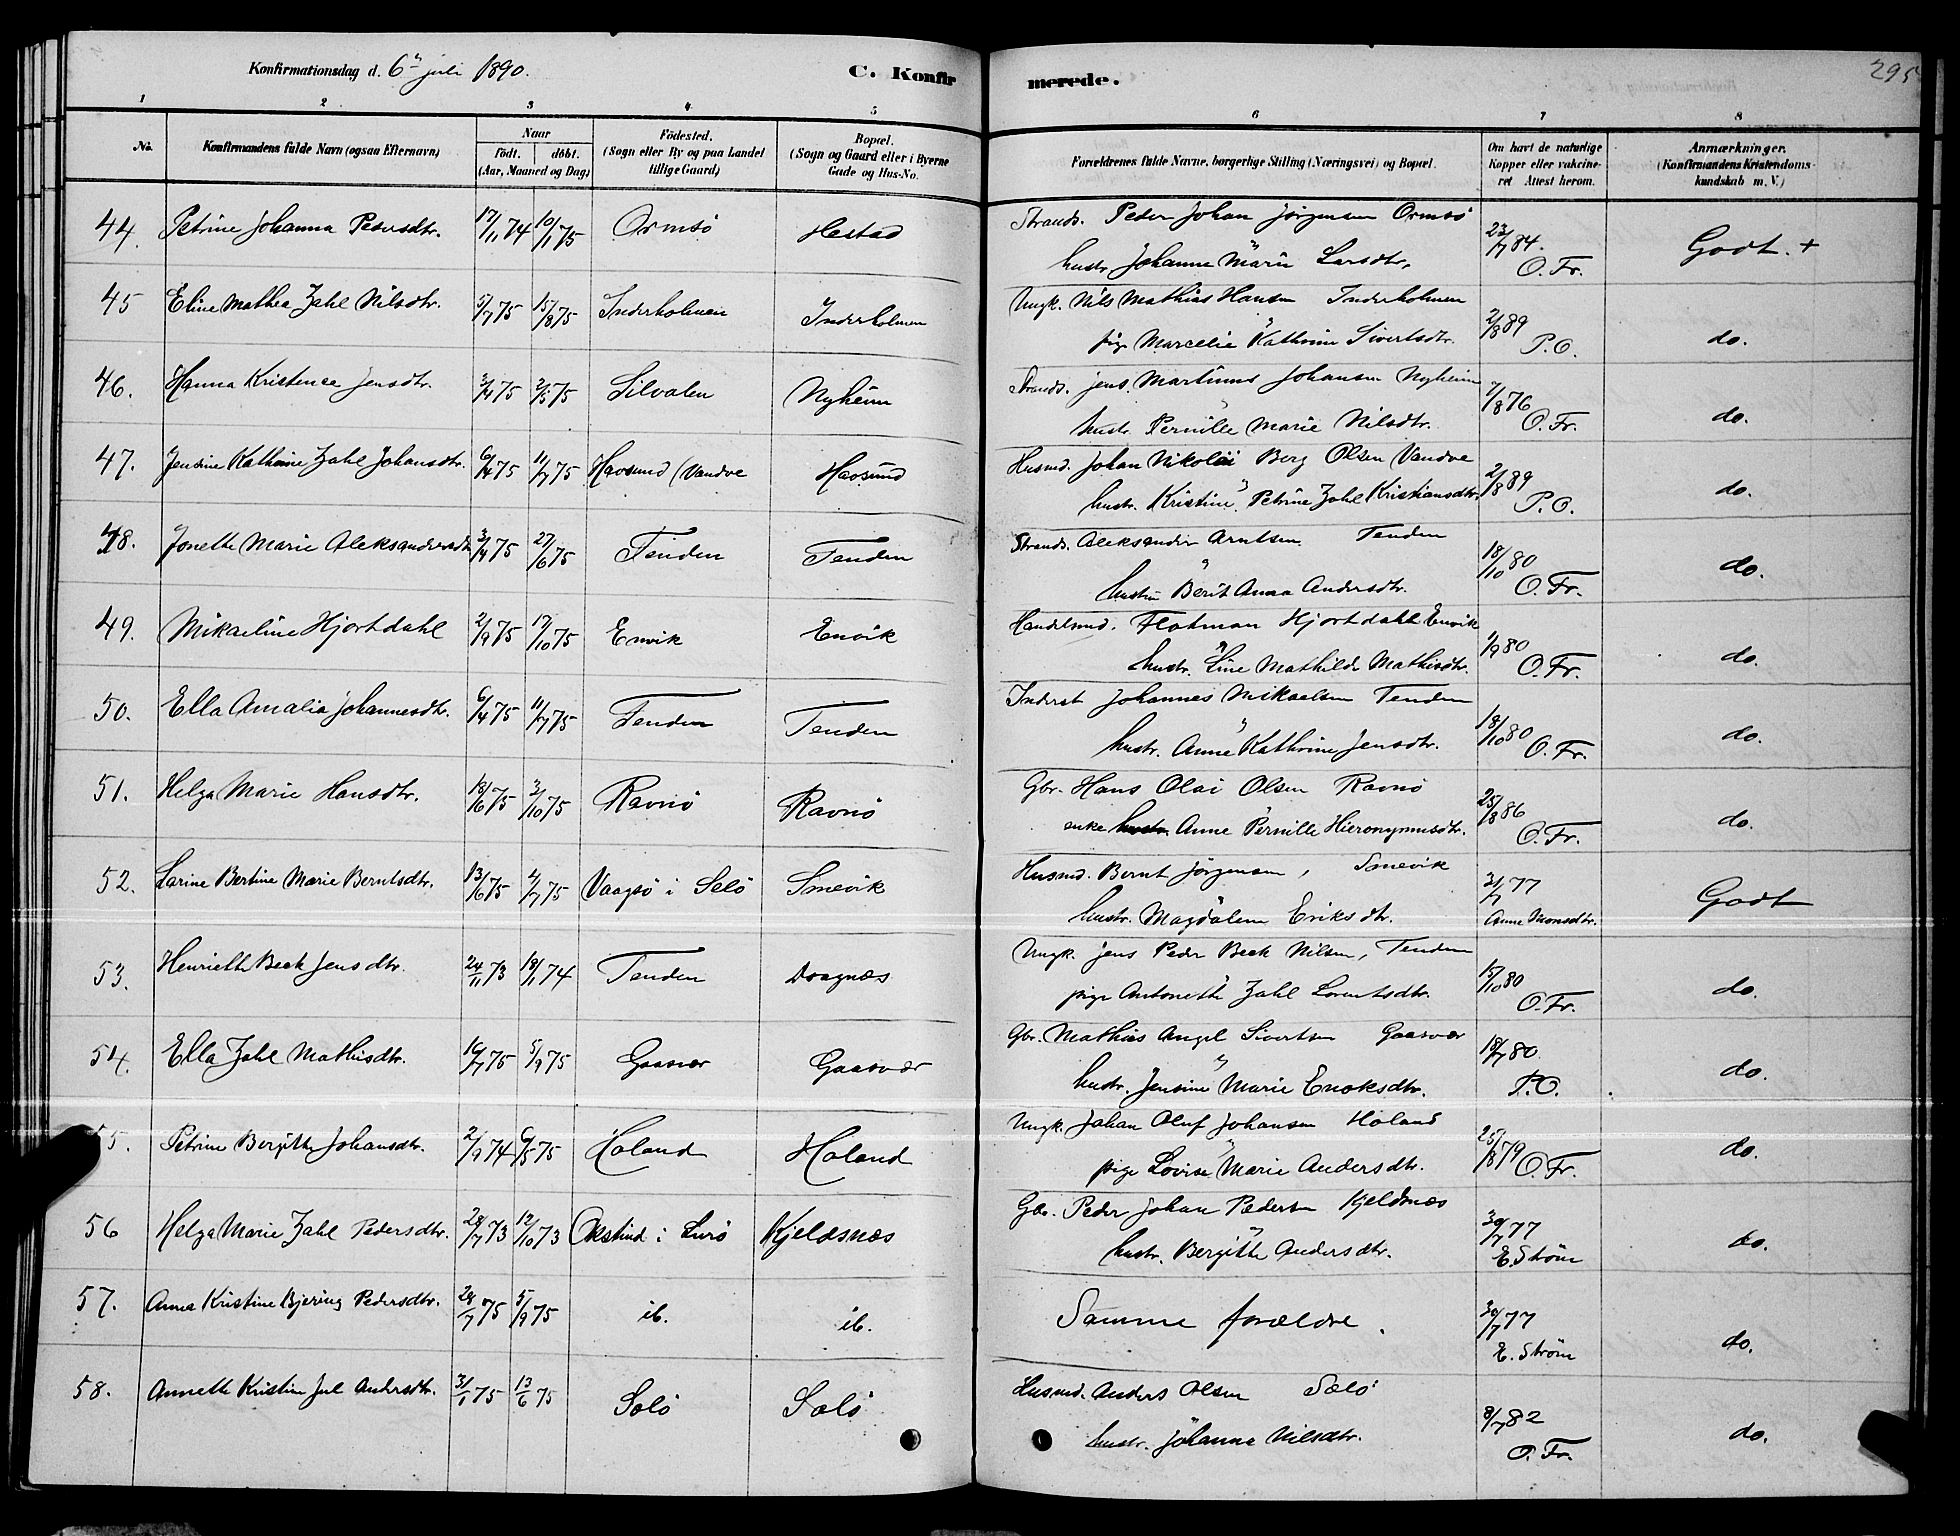 Konfirmationsdag d. 6te juli 1890. C. Konfirmerede. 295
1 2 3 4 5 6 7 8
No. Konfirmandens fulde Navn (ogsaa Efternavn) Naar födt. döbt. (Aar, Maaned og Dag) Födested. (Sogn eller By og paa Landet tillige Gaard) Bopæl. (Sogn og Gaard eller i Byerne Gade og Hus-No. Forældrenes fulde Navne, borgerlige Stilling (Næringsvei) og Bopæl. Om havt de naturlige Kopper eller vakcineret Attest herom. Anmærkninger. (Konfirmandens Kristendomskundskab m. V.)
44. Petrine Johanna Pedersdtr. 17/11 74 10/1 75 Ormsö Hestad Strands. Peder Johan Jörgensen Ormsö
hustr. Johanna Marie Larsdtr. 23/7 84. O. Fr. Godt. +
45 Eline Mathea Zahl Nilsdtr. 5/7 75 15/8 75 Inderholmen Inderholmen Ungk. Nils Mathias Hansen Inderholmen
pige Marcelie Kathrine Sivertsdtr. 2/8 89 P.O. do.
46. Hanna Kristence Jensdtr. 3/4 75 2/5 75 Silvalen Nyheim Strands. Jens Martinus Johansen Nyheim
hustr. Pernille Marie Nilsdtr. 7/8 76 O. Fr. do.
47. Jensine Kathrine Zahl Johansdtr. 6/4 75 11/7 75 Havsund (Vandve Havsund Husmd. Johan Nikolai Berg Olsen Vandve
hustr. Kristine Petrine Zahl Kristiansdtr. 2/8 89 P.O. do.
48. Jonette Marie Aleksandersdtr 3/4 75 27/6 75 Tenden Tenden Strands. Aleksander Arntsen Tenden
hustru Berit Anna Andersdtr. 18/10 80 O. Fr. do.
49. Mikaeline Hjortdahl 2/9 75 17/10 75 Envik Envik Handelsmd. Flohman Hjortdahl Envik
hustr. Line Mathilde Mathisdtr. 1/9 80 O. Fr. do.
50. Ella Amalia Johannesdtr. 6/4 75 11/7 75 Tenden Tenden Inderst Johannes Mikaelsen Tenden
hustr. Anne Kathrine Jensdtr. 18/10 80 O. Fr. do.
51. Helga Marie Hansdtr. 18/6 75 3/10 75 Ravnö Ravnö Gbr. Hans Olai Olsen Ravnö
enke hustr. Anne Pernille Hieronymusdtr. 25/8 86 O. Fr. do.
52. Larine Bertine Marie Berntsdtr. 13/6 75 4/7 75 Vaagsö i Selö Smevik Husmd. Bernt Jörgensen, Smevik
hustr. Magdalena Eriksdtr. 31/7 77 Anne Monsdtr. Godt
53. Henriette Beck Jensdtr. 24/11 73 18/1 74 Tenden Dragnæs Ungk. Jens Peder Beck Nilsen, Tenden
pige Antonette Zahl Lorentsdtr. 15/10 80 O. Fr. do.
54. Ella Zahl Mathisdtr. 16/7 75 5/9 75 Gaasvær Gaasvær Gbr. Mathias Angel Sivertsen Gaasvær
hustr. Jensine Marie Enoksdtr. 18/7 80 P.O. do.
55. Petrine Bergitte Johansdtr. 2/9 74 6/5 75 Haland Haland Ungk. Johan Oluf Johansen Haland
pige Lovise Marie Andersdtr. 25/8 79 O. Fr. do.
56 Helga Marie Zahl Pedersdtr. 28/7 73 12/10 73 Okstind i Lurö Kjeldsnæs Gbr. Peder Johan Pedersen Kjeldsnæs
hustr. Bergitte Andersdtr. 30/7 77 E. Ström do.
57. Anna Kristine Bjering Pedersdtr. 28/7 75 5/9 75 ib. ib. Samme forældre. 30/7 77 E. Ström do.
58. Annette Kristine Jul Andersdtr. 31/1 75 13/6 75 Solö Solö Husmd. Anders Olsen Solö
hustr. Johanna Nilsdtr. 8/7 82 O. Fr. do.